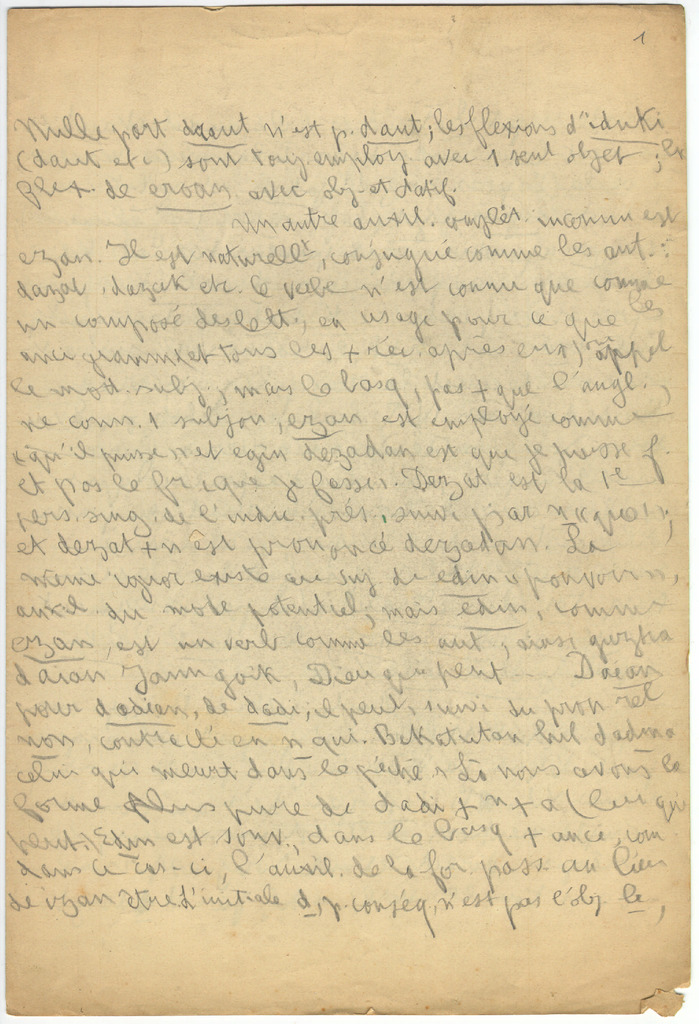 1
Nulle part draut n'est p. daut; les flexions d'iduki
(daut etc) sont touj. employ. avec 1 seul objet; les
flex. de eroan avec obj. et datif.
Un autre auxil. complét. inconnu est
ezan. Il est naturellt, conjugué comme les aut.:
dazat, dazak etc. Ce verbe n'est connu que comme
un composé en usage pour ce que les
anc. gramm. (et tous les + réc. après eux) ont appel
le mod. subj.; mais le basq, pas + que l'angl.,
ne conn. 1 subjon; ezan est employé comme
"qu'il puisse" et egin dezadan est que je puisse f.
et pas le fr. que je fasse. Dezat est la 1re
pers. sing. de l'indic. prés. suivi p. ar n "que";
et dezat + n est prononcé dezadan. La
même ignor. existe au suj. de edin "pouvoir",
auxil. du mode potentiel; mais edin, comme
ezan, est un verb comme les aut;
daian Jaungoik, Dieu qui peut ... Daian
pour dadian, de dadi, il peut, suivi du pron rel
non, contracté en n qui. Bekatutan hil dadina
celui qui meurt dans le péché. Là nous avons la
forme plus pure de dadi + n + a (lui qui
peut). Edin est souv., dans le basq + anc., com
dans ce cas-ci, l'auxil. de la for. pass. au lieu
de izan être. L'initiale d, p. conséq, n'est pas l'obj. le,